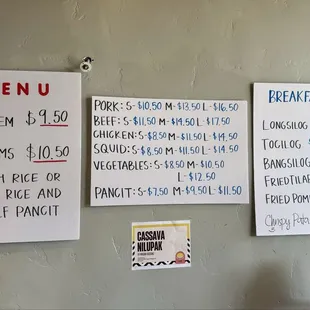 ENU
EM $9.50
MS $10.50
H RICE OR
RICE AND
LF PANCIT
PORK: S-$10.50 M-$13.50 L-$16.50
BEEF: S-$11.50 M-$14.50 L-$17.50
CHICKEN: S-$8.50 M-$11.50 L-$14.50
SQUID: S-$8.50 M-$11.50 L-$14.50
VEGETABLES: S-$8.50 M-$10.50
L-$12.50
PANCIT: S-$7.50 M-$9.50 L-$11.50
CASSAVA
NILUPAK
BREAKFA
LONGSILOG
TOCILOG
BANGSILOG
FRIED TILA
FRIED POM
Chrispy Pata